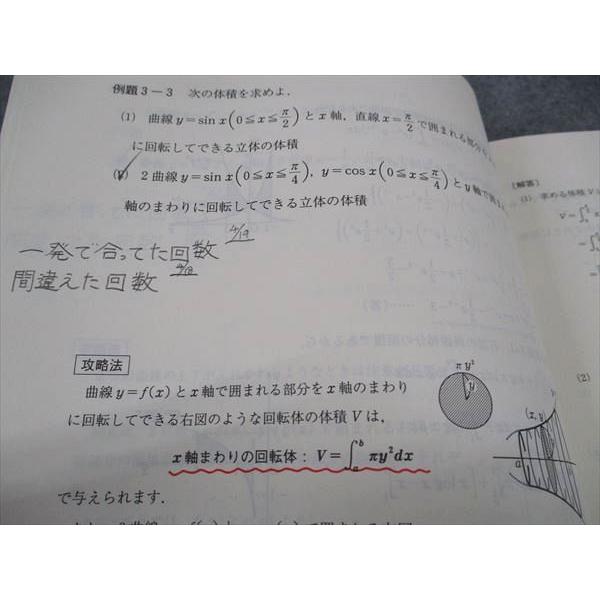 例題3－3 次の体積を求めよ．
(1) 曲線y＝sin x(0≦x≦π/2)とx軸，直線x＝π/2で囲まれる部分を
に回転してできる立体の体積
2曲線y＝sin x(0≦x≦π/4)，y＝cos x(0≦x≦π/4)とy軸で囲
軸のまわりに回転してできる立体の体積
一発で合ってた回数 4/19
間違えた回数 4/18
攻略法
曲線y＝f(x)とx軸で囲まれる部分をx軸のまわり
に回転してできる右図のような回転体の体積Vは，
x軸まわりの回転体：V＝∫_a^b πy²dx
で与えられます．
πy²
y
(x, y)
a
［解答］
(1) 求める体積V
(2)